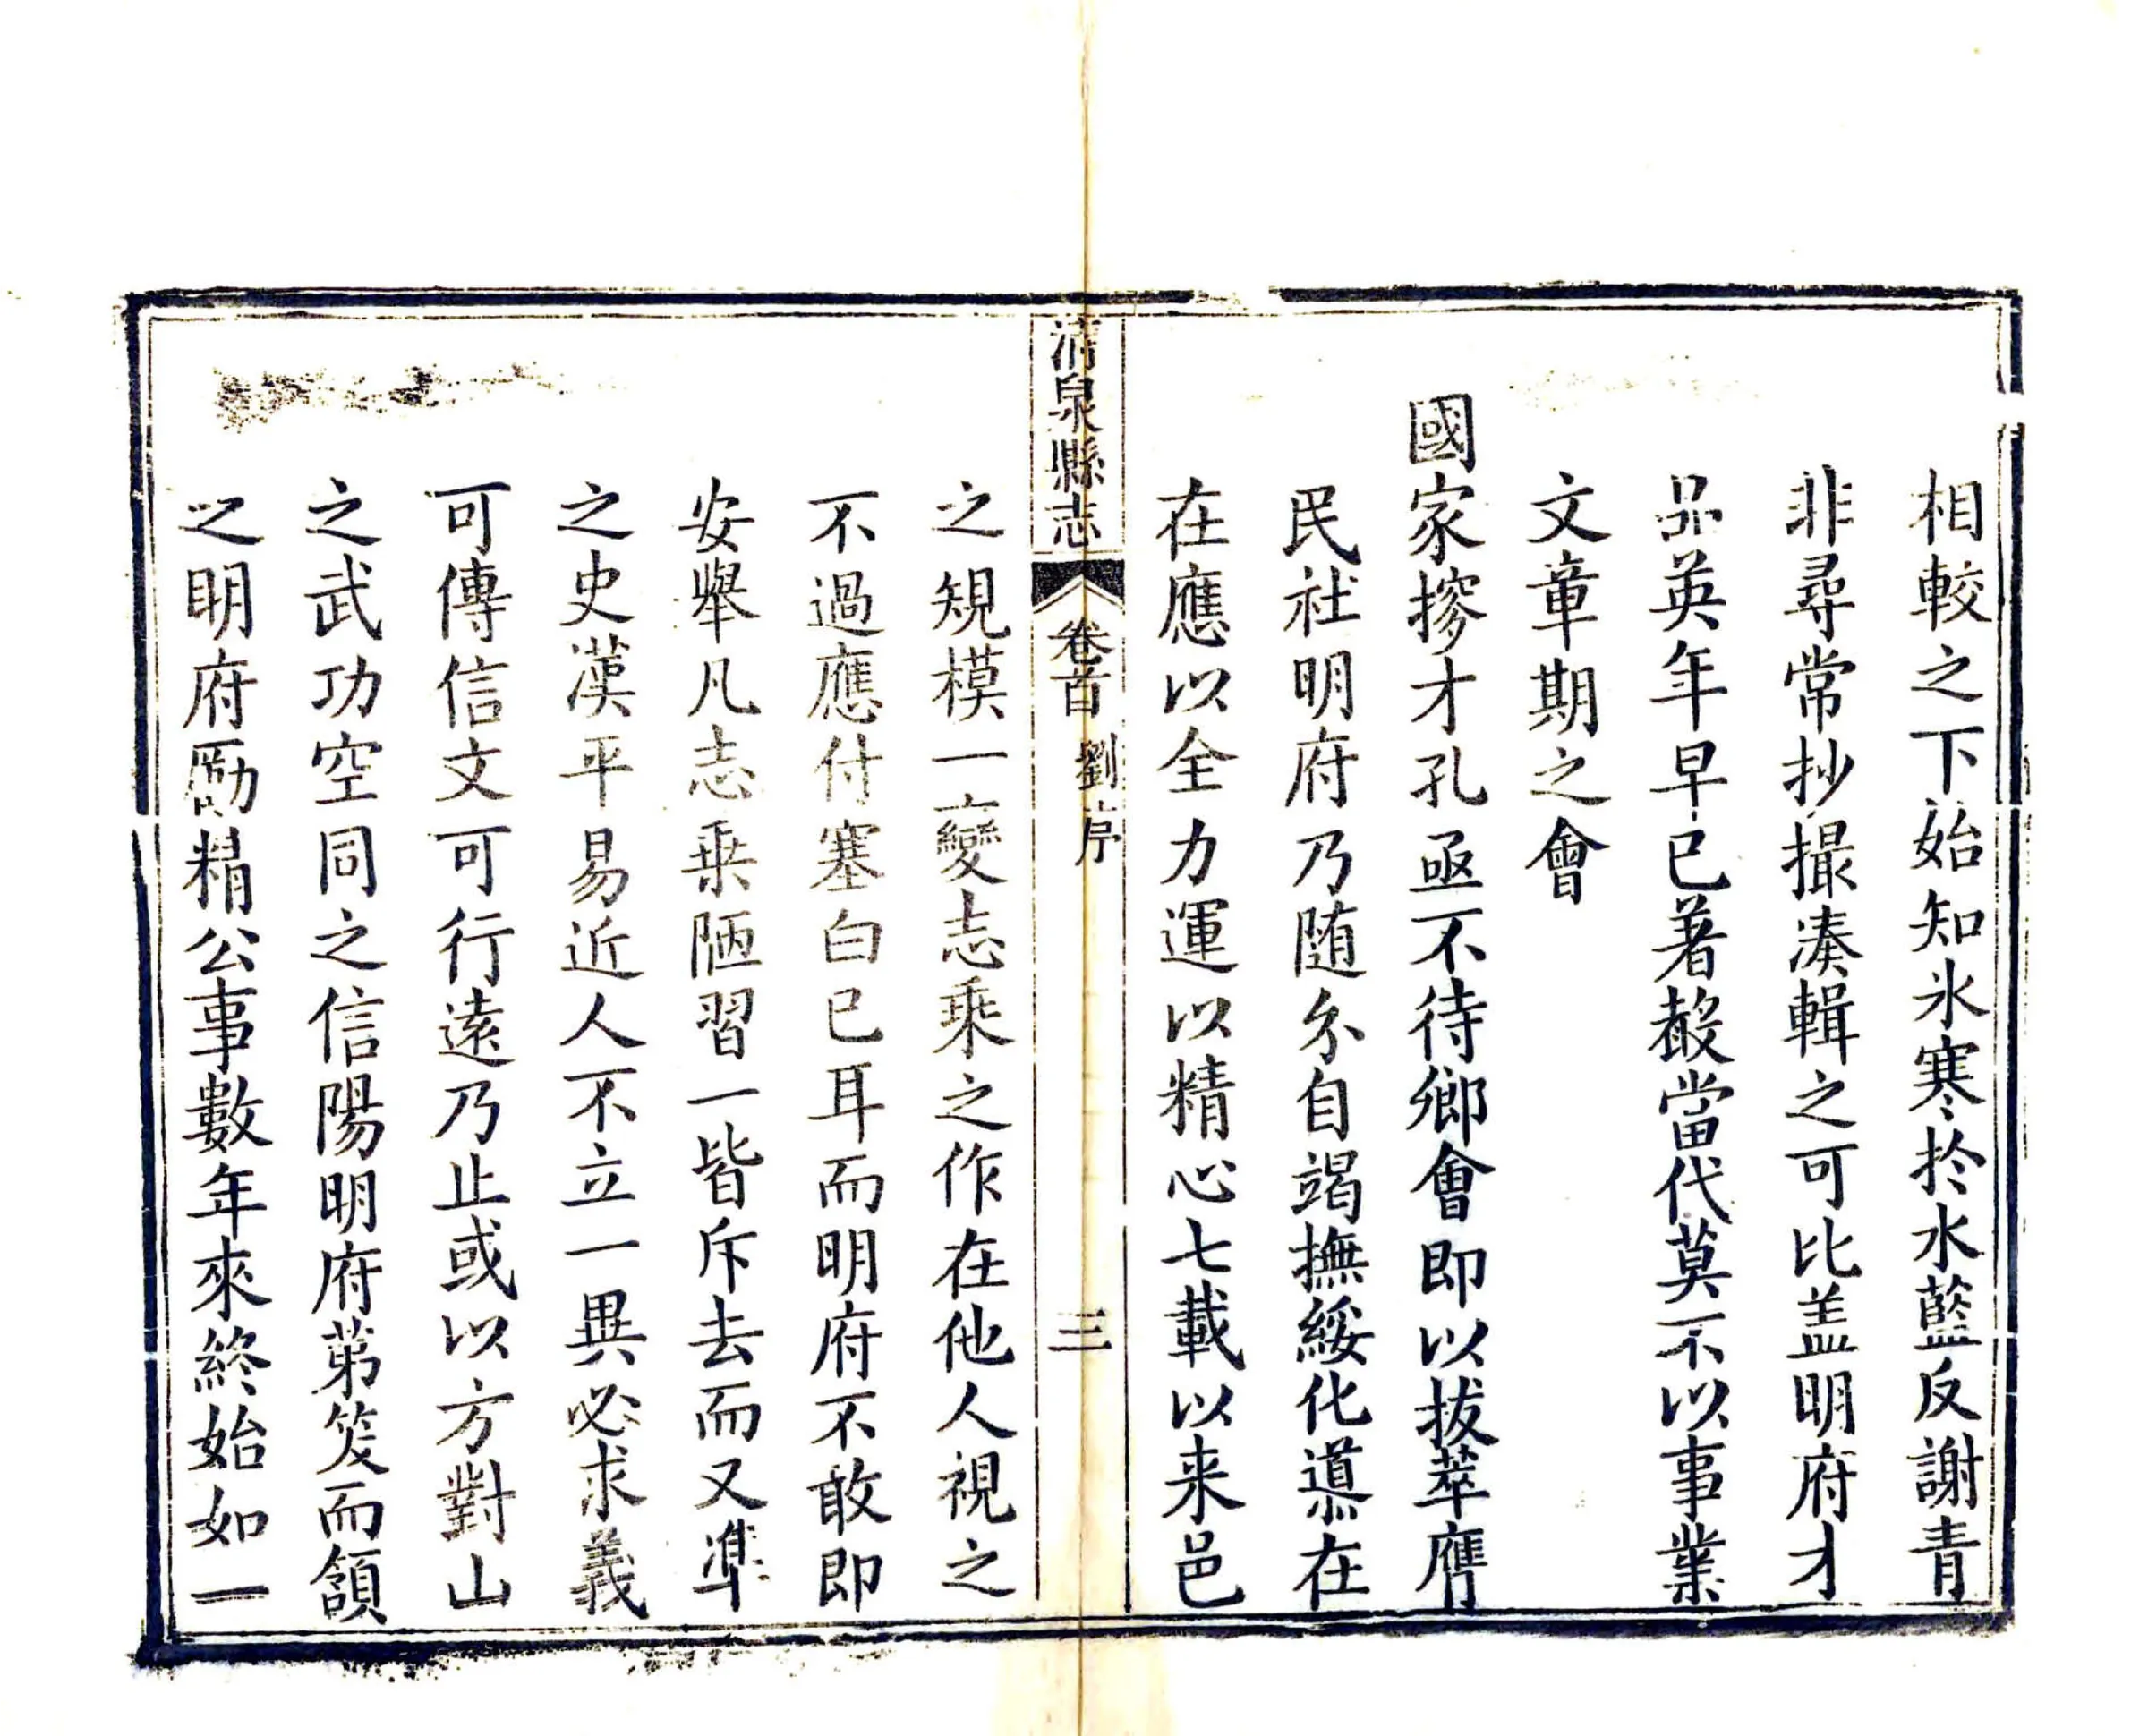 相較之下始知氷寒於水藍反謝青
非尋常抄撮湊輯之可比盖明府才
品英年早已著嚴當代莫不以事業
文章期之會
國家掄才孔亟不待鄉會即以拔萃膺
民社明府乃随分自竭撫綏化導在
在應以全力運以精心七載以来邑
清泉縣志
卷首
劉序
三
之規模一變志乘之作在他人視之
不過應付塞白已耳而明府不敢即
安舉凡志乗陋習一皆斥去而又準
之史漢平易近人不立一異必求義
可傳信文可行遠乃止或以方對山
之武功空同之信陽明府苐笑而頷
之明府勵精公事數年來終始如一